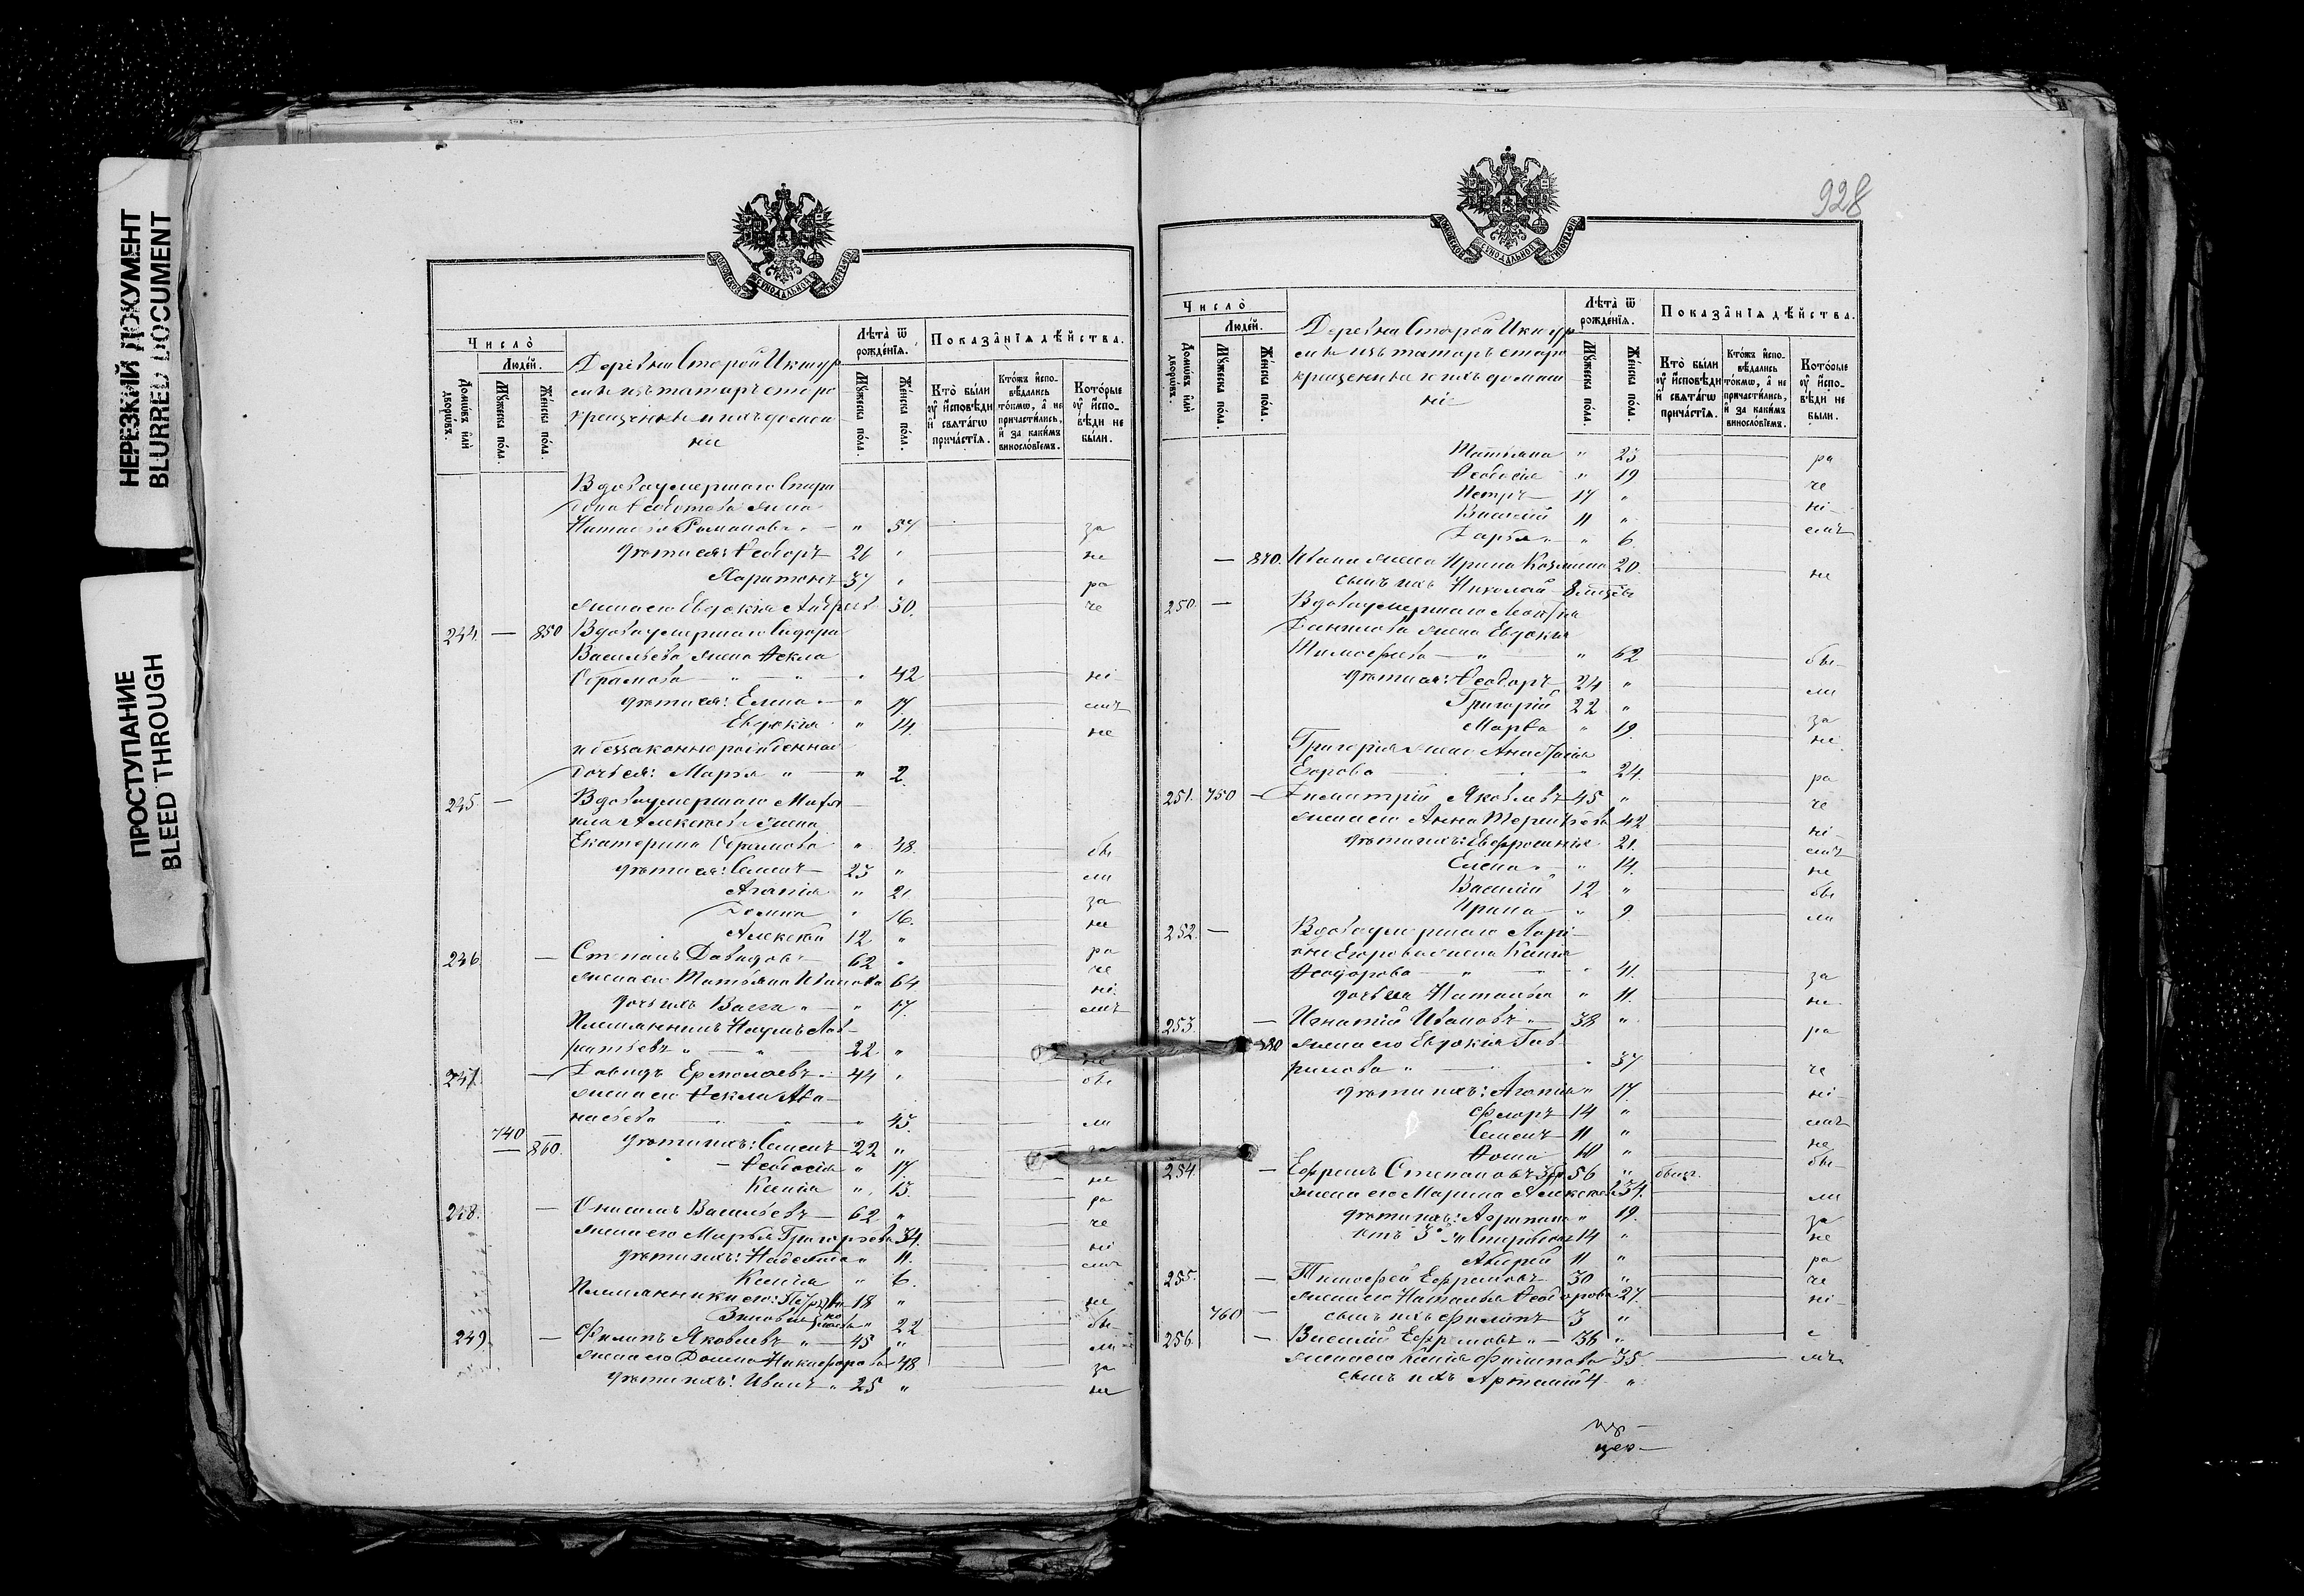 НЕРЕЗКИЙ ДОКУМЕНТ
BLURRED DOCUMENT
ПРОСТУПАНИЕ
BLEED THROUGH
Число̀
Людей.
Домѡвъ или дворѡвъ.
Мꙋжеска пола.
Женска пола.
Деревни Старой Икшур
мы изъ татаръ старо
крещенные и ихъ домаш
ніе
Лѣта ѿ рожденїѧ.
Мꙋжеска пола.
Женска пола.
Показанїѧ дѣйства.
Кто были оу исповѣди и свѧтагѡ причастїѧ.
Кто жъ исповѣдались токмѡ, а не причастились, и за какимъ винословїемъ.
Которые оу исповѣди не были.
Вдова умершаго Спири
дона Ѳедотова жена
Наталья Романова " 57 за
дѣти ея: Ѳеодоръ 26 " не
Харитонъ 37 " ра
жена его Евдокія Андреева 30. че
244. — 850 Вдова умершаго Сидора
Васильева жена Ѳекла
Абрамова " 42 ні
дѣти ея: Елена " 17. емъ
Евдокія " 14. не
и беззаконнорожденная
дочь ея: Марѳа " 2.
245. — Вдова умершаго Матвѣ
Алексѣева жена
Екатерина Абрамова " 48. бы
дѣти ея: Семенъ 23 " ли
Агапія " 21 за
Домна " 16. не
Алексѣй 12 " ра
246. — Степанъ Давидовъ 62 " че
жена его Татьяна Иванова 64 ні
дочь ихъ Васса " 17. емъ
Племянникъ Наумъ Лав-
рентьевъ " 22 " не
247. — Давидъ Ермолаевъ 44 " бы
жена его Ѳекла Аѳа-
насьева " 45. ли
740 — 860. дѣти ихъ: Семенъ 22 " за
Ѳеодосія " 17. не
Ксенія " 15. ра
248. — Онисимъ Васильевъ 62 " че
жена его Марья Григорьева 34. ні
дѣти ихъ: Надежда " 11. емъ
Ксенія " 6.
Племянники его: Петръ 18 " не
Зиновія " 22 бы
249. — Филипъ Яковлевъ " 45 " ли
жена его Домна Никифорова 48. за
дѣти ихъ: Иванъ " 25 " не
928
Число̀
Людей.
Домѡвъ или дворѡвъ.
Мꙋжеска пола.
Женска пола.
Деревни Старой Икшур
мы изъ татаръ старо
крещенные и ихъ домаш
ніе
Лѣта ѿ рожденїѧ.
Мꙋжеска пола.
Женска пола.
Показанїѧ дѣйства.
Кто были оу исповѣди и свѧтагѡ причастїѧ.
Кто жъ исповѣдались токмѡ, а не причастились, и за какимъ винословїемъ.
Которые оу исповѣди не были.
Татьяна " 23 ра
Ѳеодосія " 19 че
Петръ 17 " ні
Василій 11 " емъ
Дарья " 6.
— 870. Ивана жена Ирина Козмина 20. не
сынъ ихъ Николай 8 мѣсяц
250. — Вдова умершаго
Данилова жена Евдокія
Тимофеева " 62 бы
дѣти ея: Ѳеодоръ 24 " ли
Григорій 22 " за
Марѳа " 19. не
Григорія жена Анастасія
Егорова " 24. ра
251. 750 — Димитрій Яковлевъ 45 " че
жена его Анна Терентьева 42 ні
дѣти ихъ: Евфросинія 21. емъ
Елена " 14. не
Василій 12 " бы
Ирина " 9 ли
252. — Вдова умершаго Лари-
она Егорова жена Ксенія
Ѳеодорова " 41. за
дочь ея Наталья " 11. не
253. — Игнатій Ивановъ 38 " ра
880 жена его Евдокія Гав-
рилова " 37 че
дѣти ихъ: Агапія " 17. ні
Флоръ 14 " емъ
Семенъ 11 " не
Ѳома 10 " бы
254 — Ефремъ Степановъ 56 " былъ.
жена его Марина Алексѣева 34. ли
дѣти ихъ: Агрипина " 19. за
14 " не
Андрей 11 " ра
255. — Тимофей Ефремовъ 30 " че
жена его Наталья Ѳеодорова 27. ні
760 — сынъ ихъ Филипъ 3 "
256. — Василій Ефремовъ " 36 "
жена его Ксенія Филипова 35. емъ
сынъ ихъ Артемій 4 "
цер-